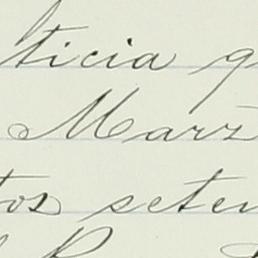 ticia q
Marz
tos seten